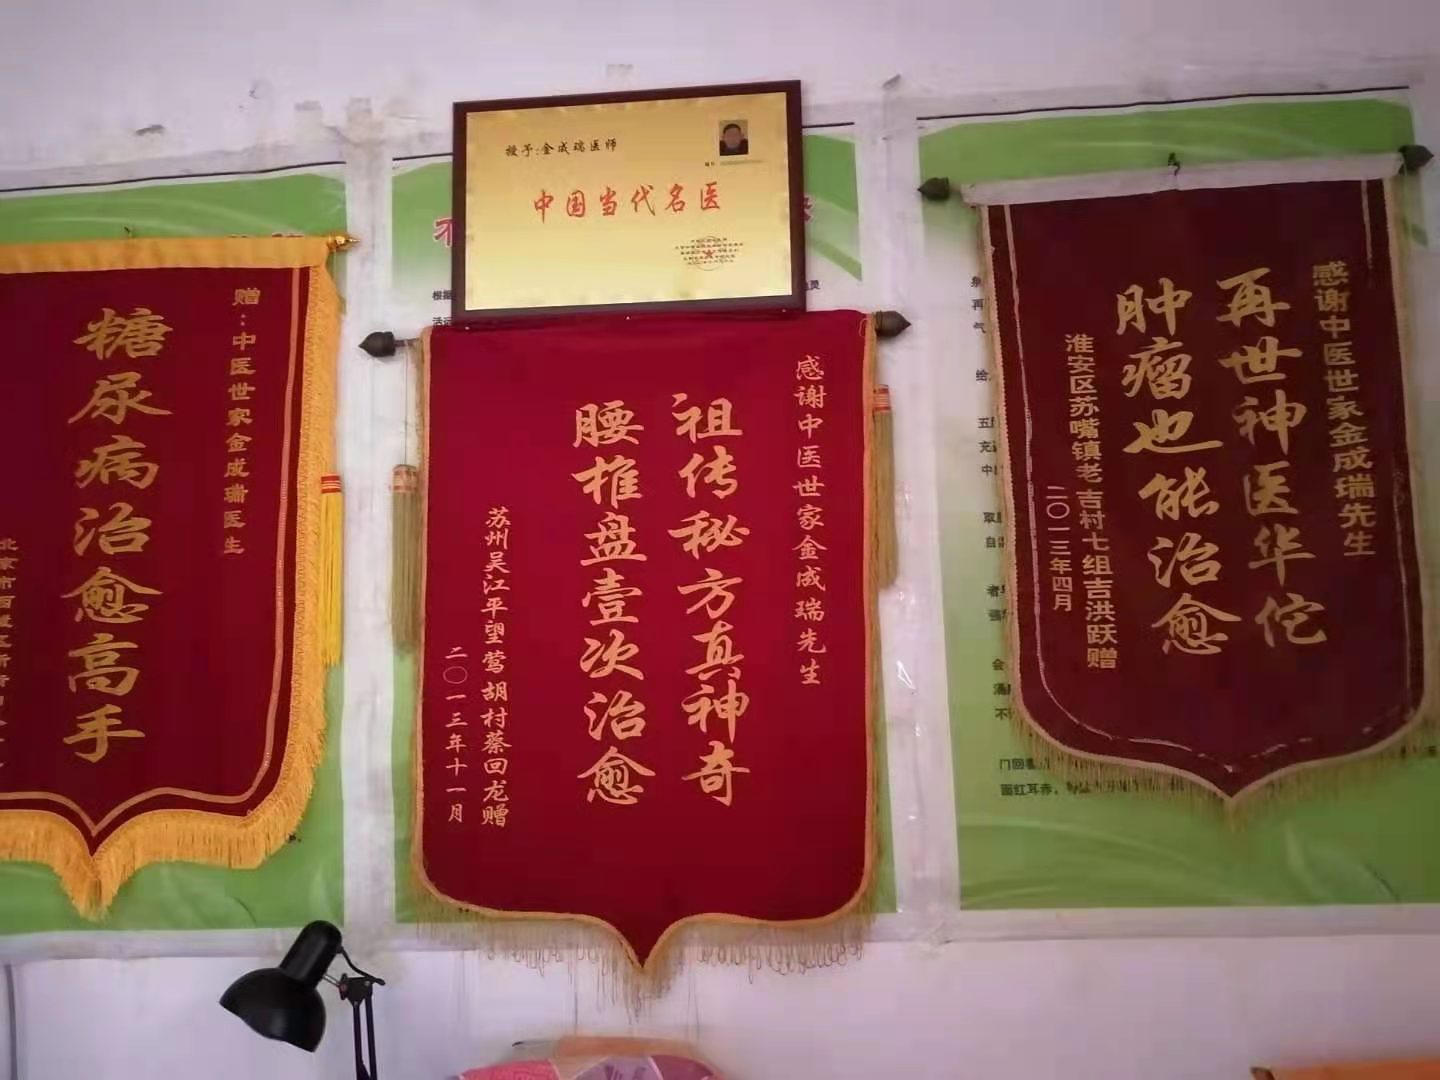 授予:金成瑞医师
中国当代名医
赠:中医世家金成瑞医生
糖尿病治愈高手
感谢中医世家金成瑞先生
祖传秘方真神奇
腰椎盘壹次治愈
苏州吴江平望莺胡村蔡回龙赠
二〇一三年十一月
感谢中医世家金成瑞先生
再世神医华佗
肿瘤也能治愈
淮安区苏嘴镇老吉村七组吉洪跃赠
二〇一三年四月
门回春
面红耳赤，